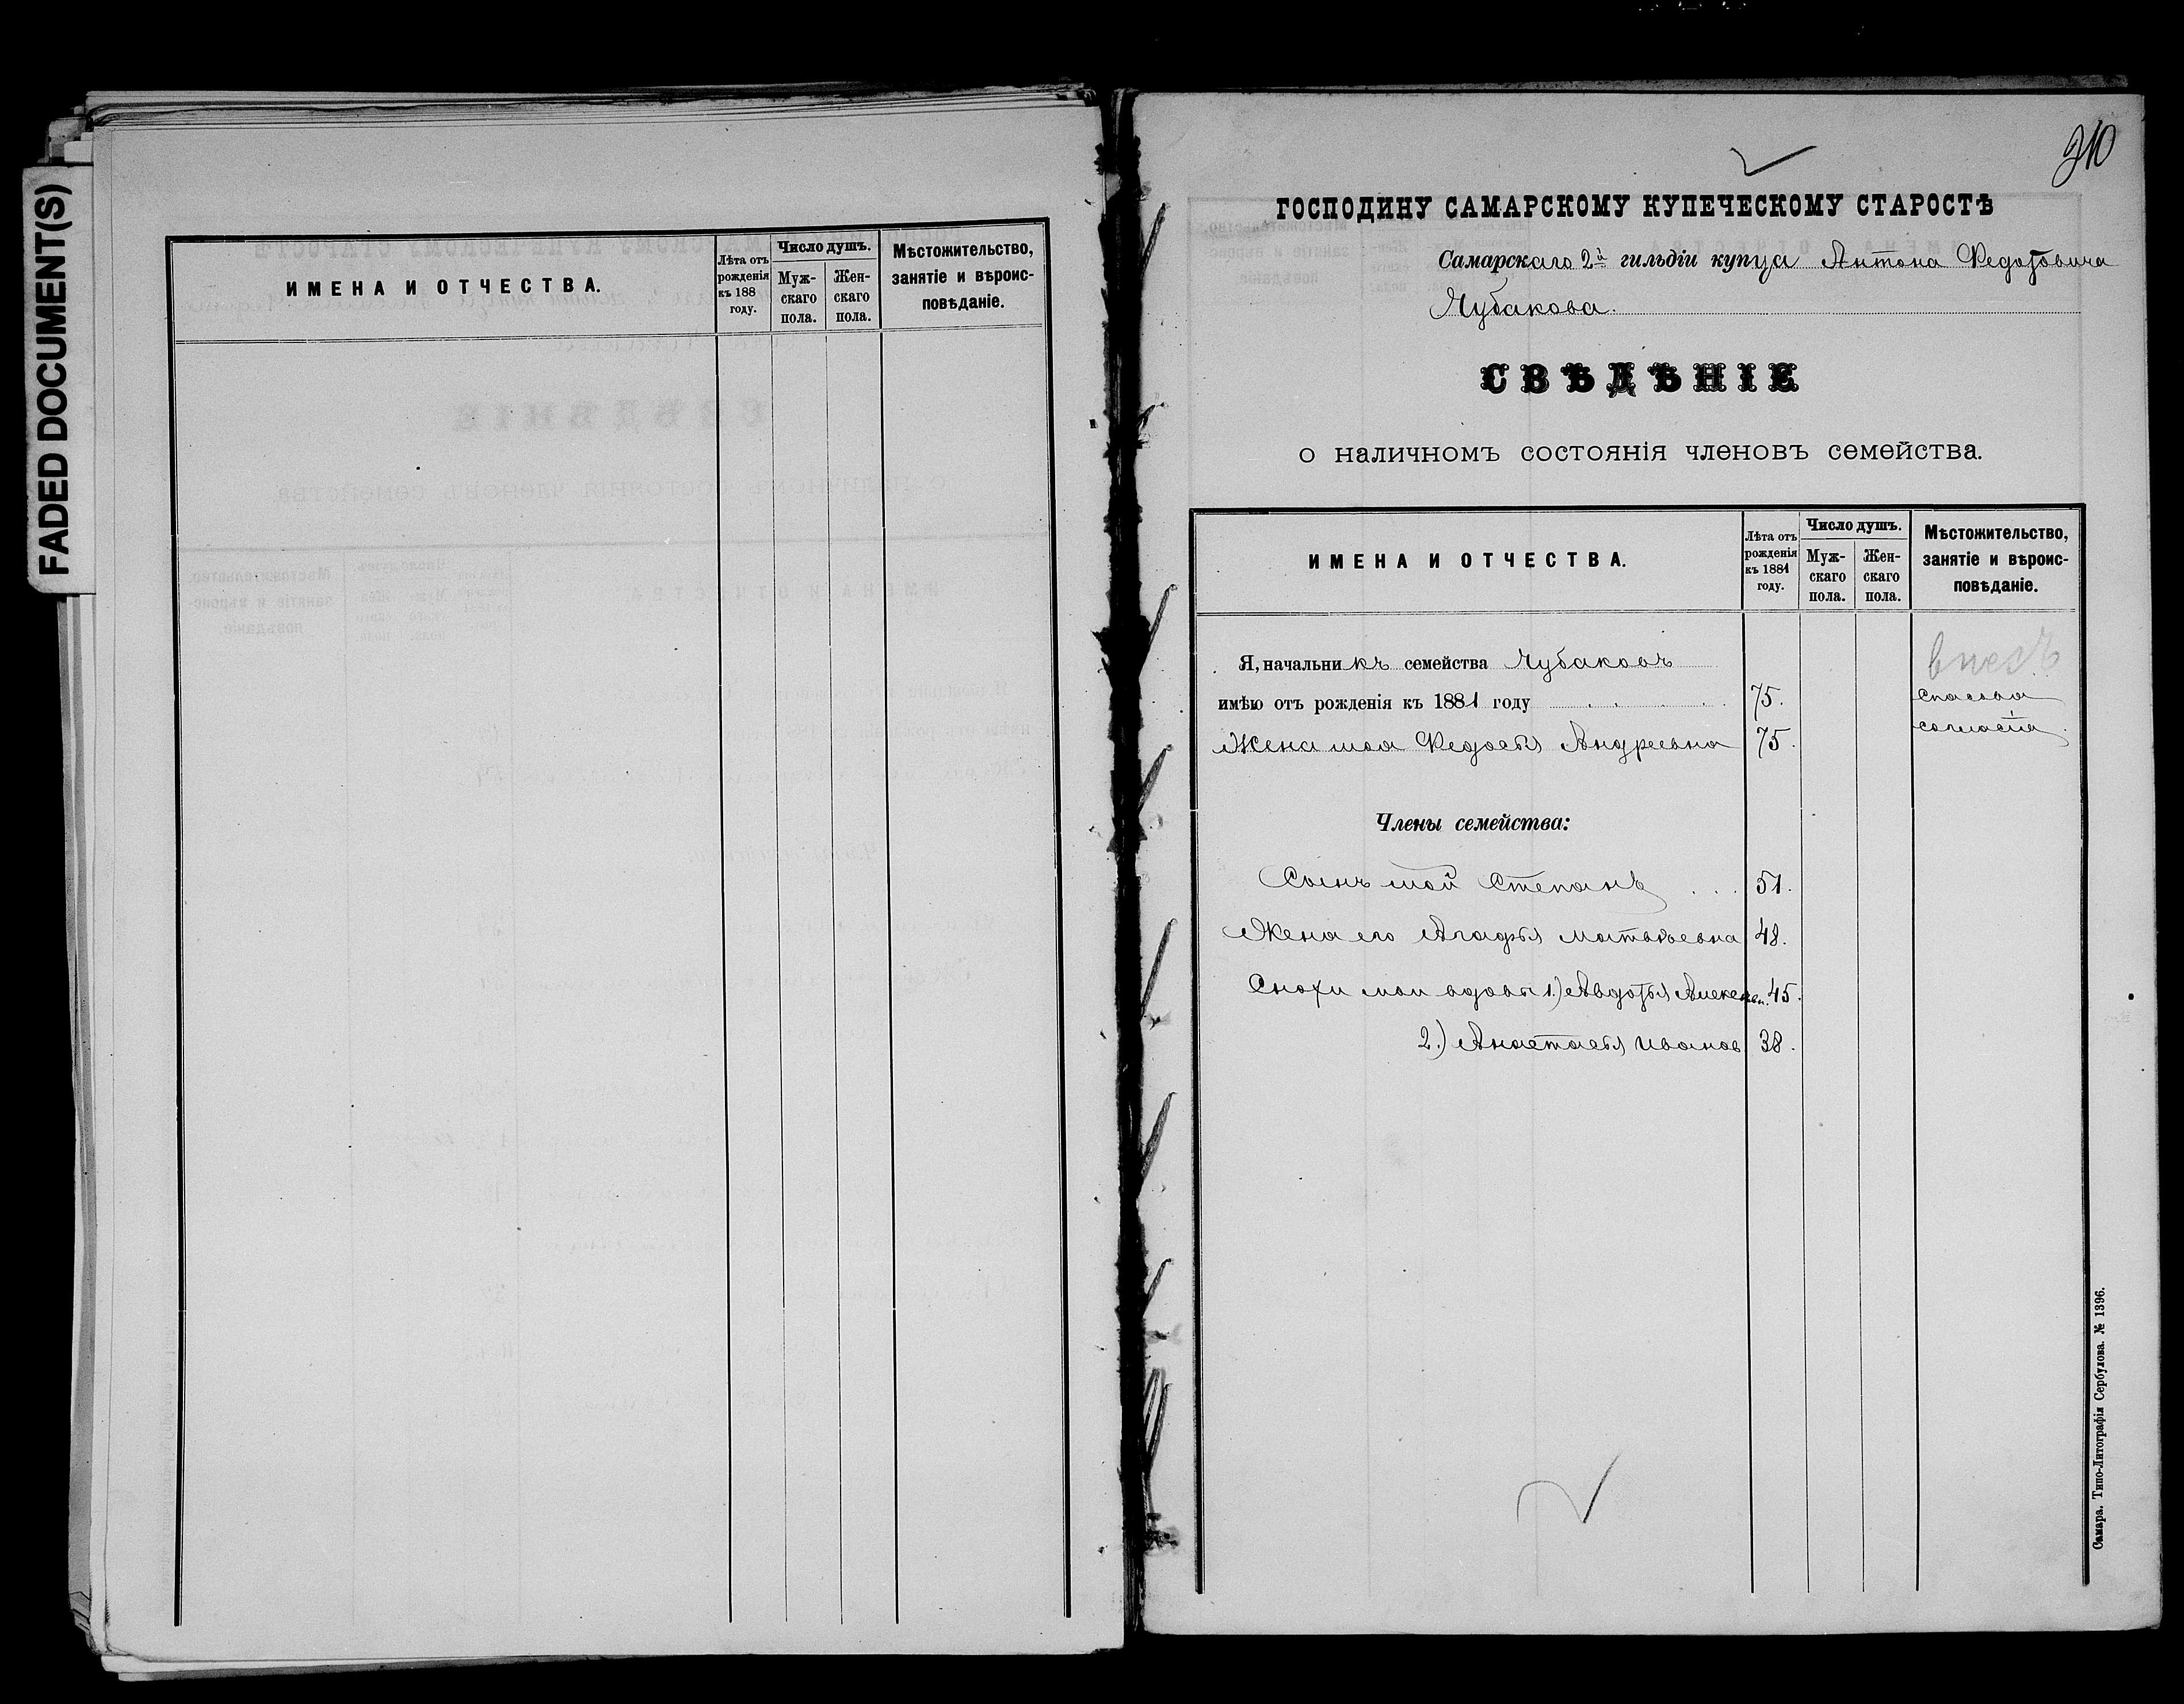 FADED DOCUMENT(S)
ИМЕНА И ОТЧЕСТВА.
Лѣта отъ рожденія къ 188 году.
Число душъ.
Муж-скаго пола.
Жен-скаго пола.
Мѣстожительство, занятіе и вѣроис-повѣданіе.
210
ГОСПОДИНУ САМАРСКОМУ КУПЕЧЕСКОМУ СТАРОСТѢ
Самарскаго 2й гильдіи купца Антона Федотовича
Чубакова.
СВѢДѢНІЕ
о наличномъ состоянія членовъ семейства.
ИМЕНА И ОТЧЕСТВА.
Лѣта отъ рожденія къ 1881 году.
Число душъ.
Муж-скаго пола.
Жен-скаго пола.
Мѣстожительство, занятіе и вѣроис-повѣданіе.
Я, начальникъ семейства Чубаковъ
имѣю отъ рожденія къ 1881 году 75.
Спасова
согласія
Жена моя Федосья Андреевна 75.
Члены семейства:
Сынъ мой Степанъ 51.
Жена его Агафья Матвѣевна 48.
Снохи мои вдовы 1.) Авдотья Алексеев. 45.
2.) Анастасья Иванов 38.
Самара. Типо-Литографія Сербулова. № 1396.